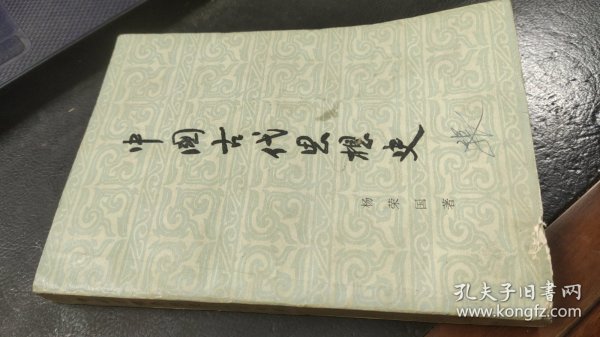 中国古代思想史
杨荣国 著
孔夫子旧書网
www.kongfz.com